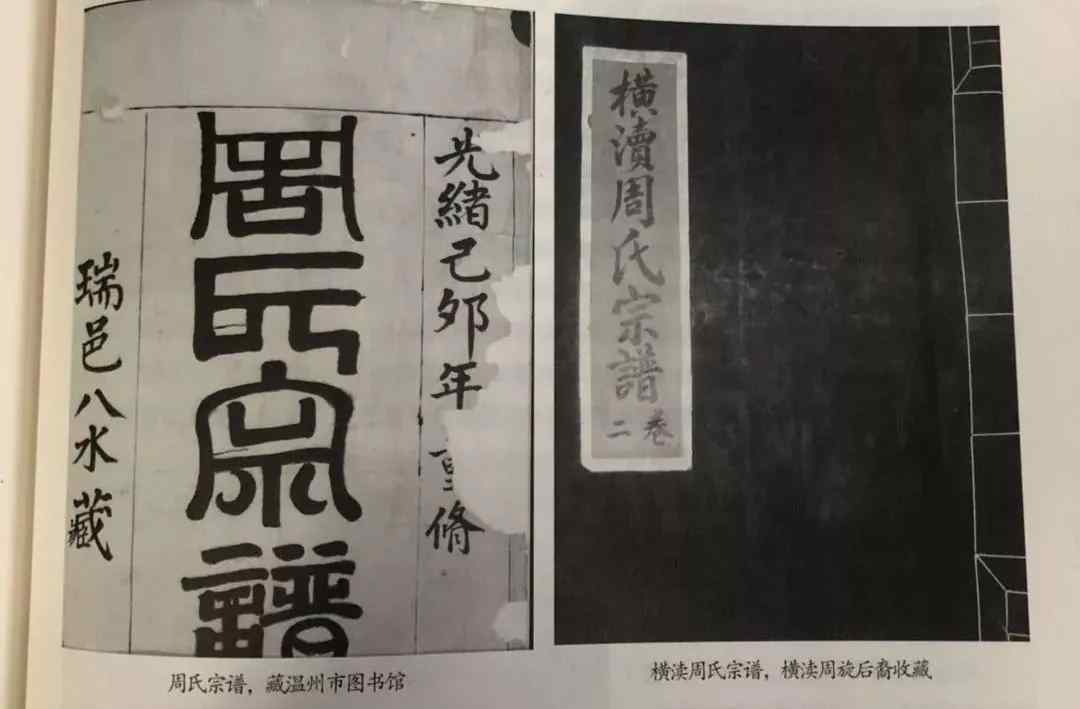 光緒己卯年重脩
周氏宗譜
瑞邑八水藏
周氏宗谱，藏温州市图书馆
橫瀆周氏宗譜
卷二
横渎周氏宗谱，横渎周旋后裔收藏